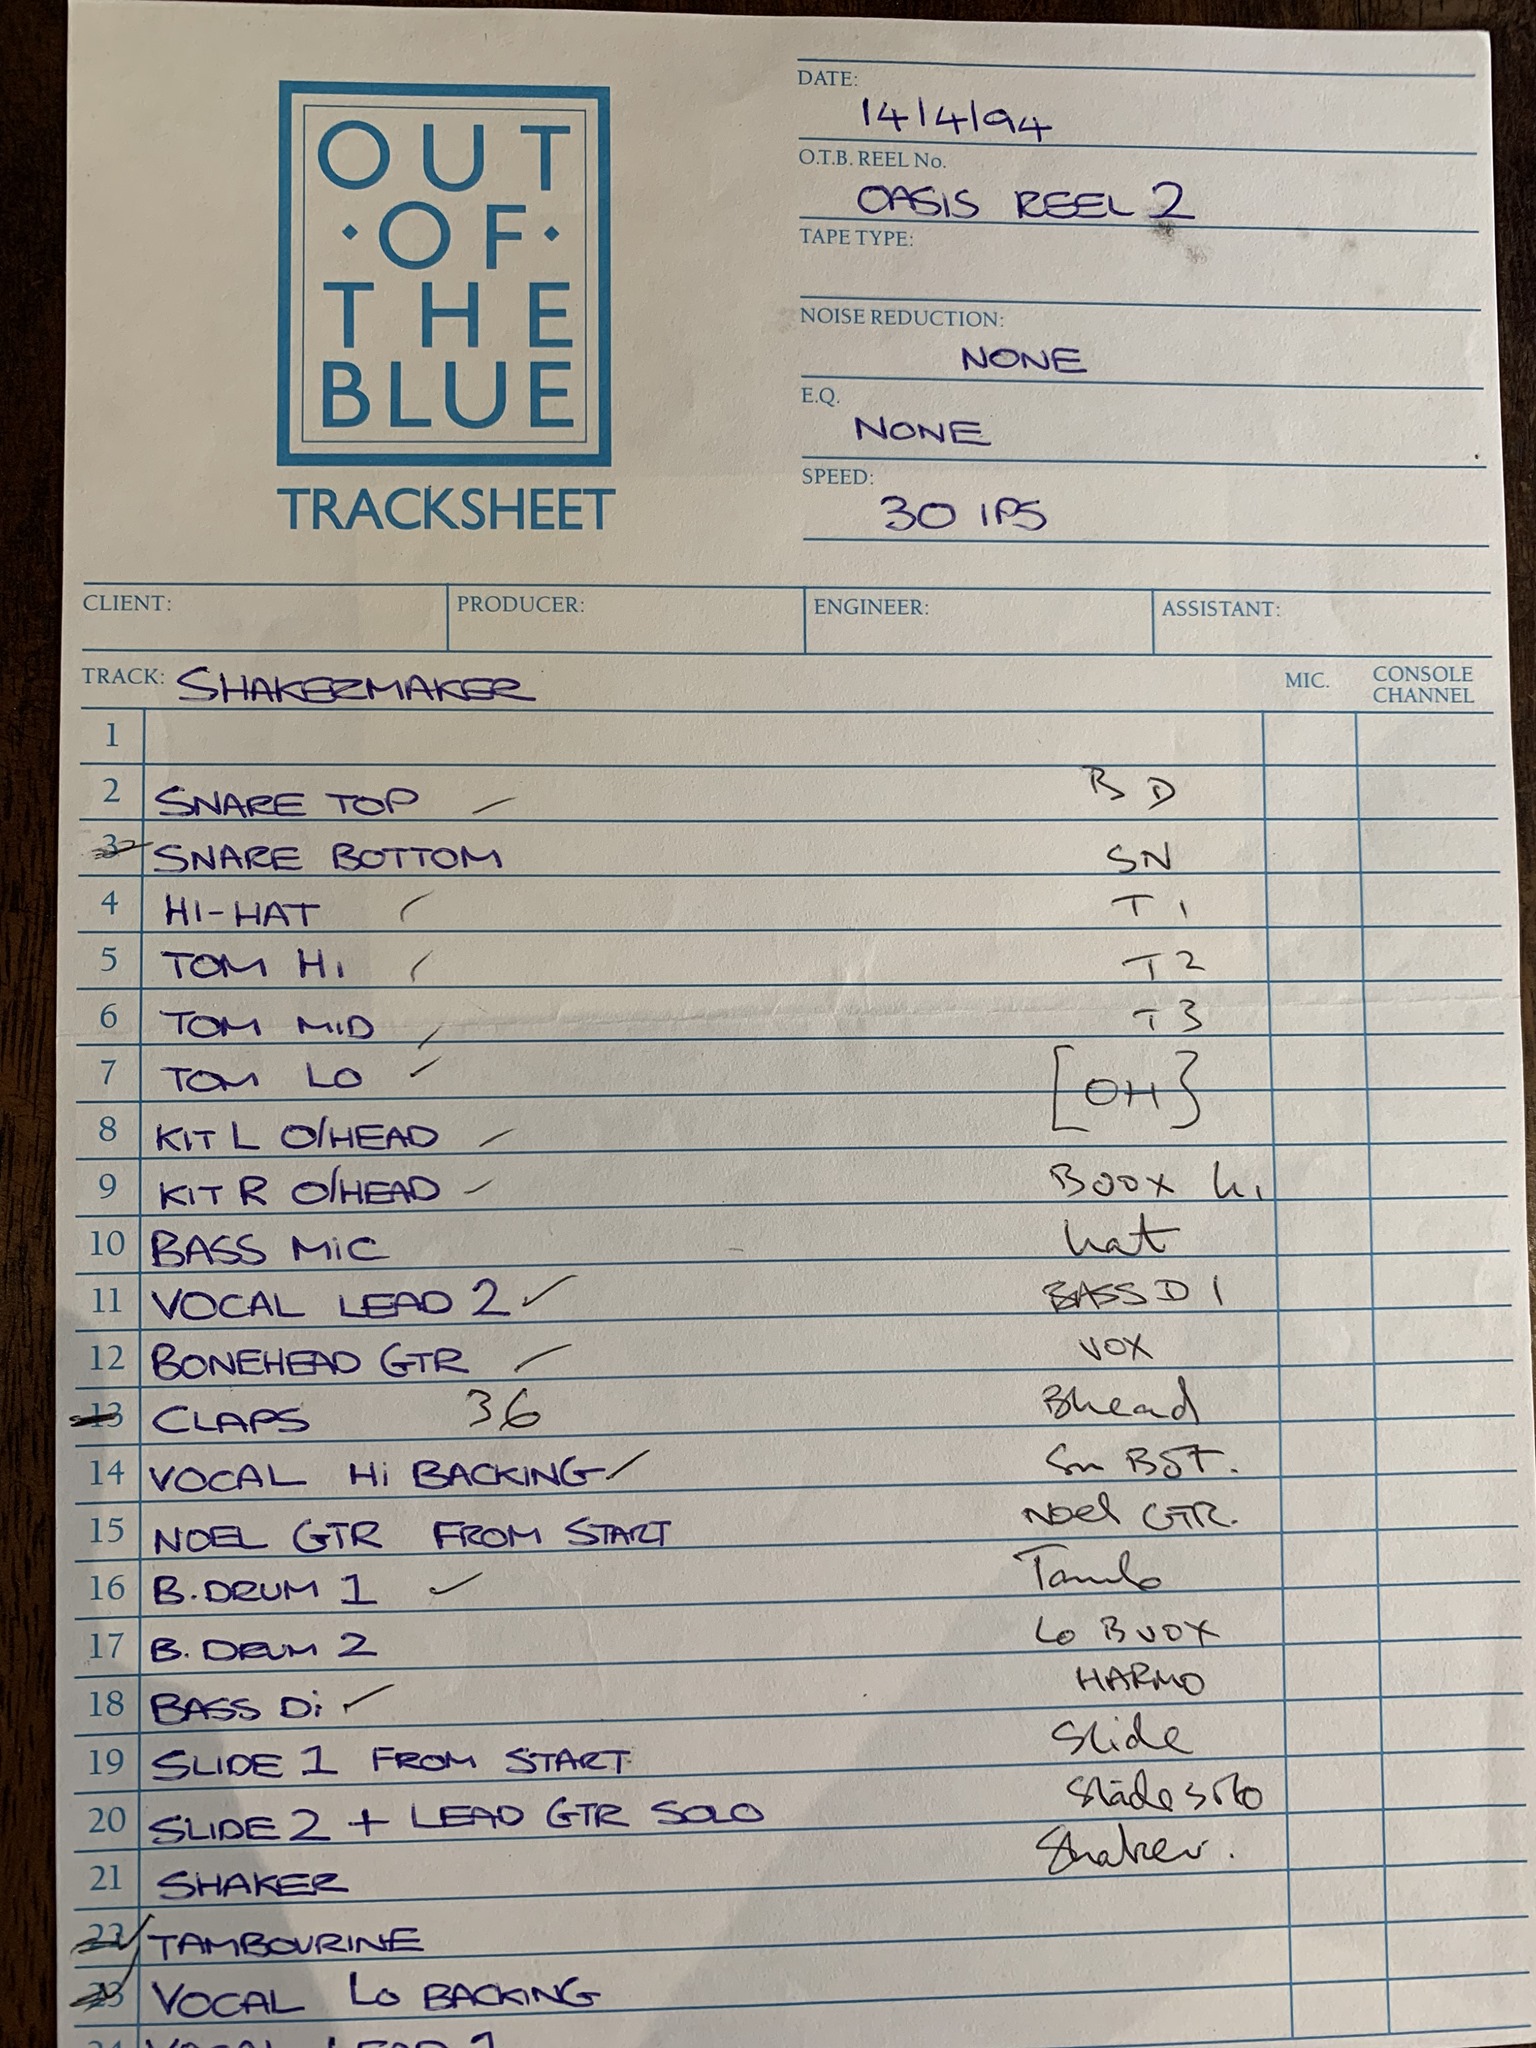 OUT
·OF·
THE
BLUE
TRACKSHEET
DATE:
14/4/94
O.T.B. REEL No.
OASIS REEL 2
TAPE TYPE:
NOISE REDUCTION:
NONE
E.Q.
NONE
SPEED:
30 IPS
CLIENT: PRODUCER: ENGINEER: ASSISTANT:
TRACK: SHAKERMAKER MIC. CONSOLE CHANNEL
1
2 SNARE TOP BD
3 SNARE BOTTOM SN
4 HI-HAT T1
5 TOM Hi T2
6 TOM MID T3
7 TOM LO [OH}
8 KIT L O/HEAD
9 KIT R O/HEAD BVOX hi
10 BASS MiC hat
11 VOCAL LEAD 2 BASS DI
12 BONEHEAD GTR VOX
13 CLAPS 36 Bhead
14 VOCAL Hi BACKING Sn BOT.
15 NOEL GTR FROM START Noel GTR.
16 B.DRUM 1 Tamb
17 B. DRUM 2 Lo BVOX
18 BASS Di HARMO
19 SLIDE 1 FROM START Slide
20 SLIDE 2 + LEAD GTR SOLO Slide solo
21 SHAKER Shaker.
22 TAMBOURINE
23 VOCAL Lo BACKING
24 VOCAL LEAD 1